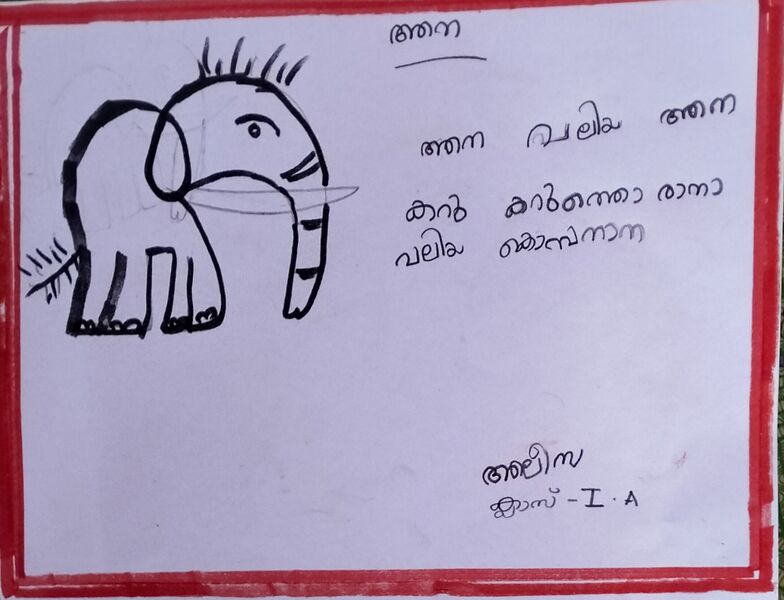 ആന
ആന വലിയ ആന
കറു കറുത്തൊരാനാ
വലിയ കൊമ്പനാന
അലീസ
ക്ലാസ് - I. A